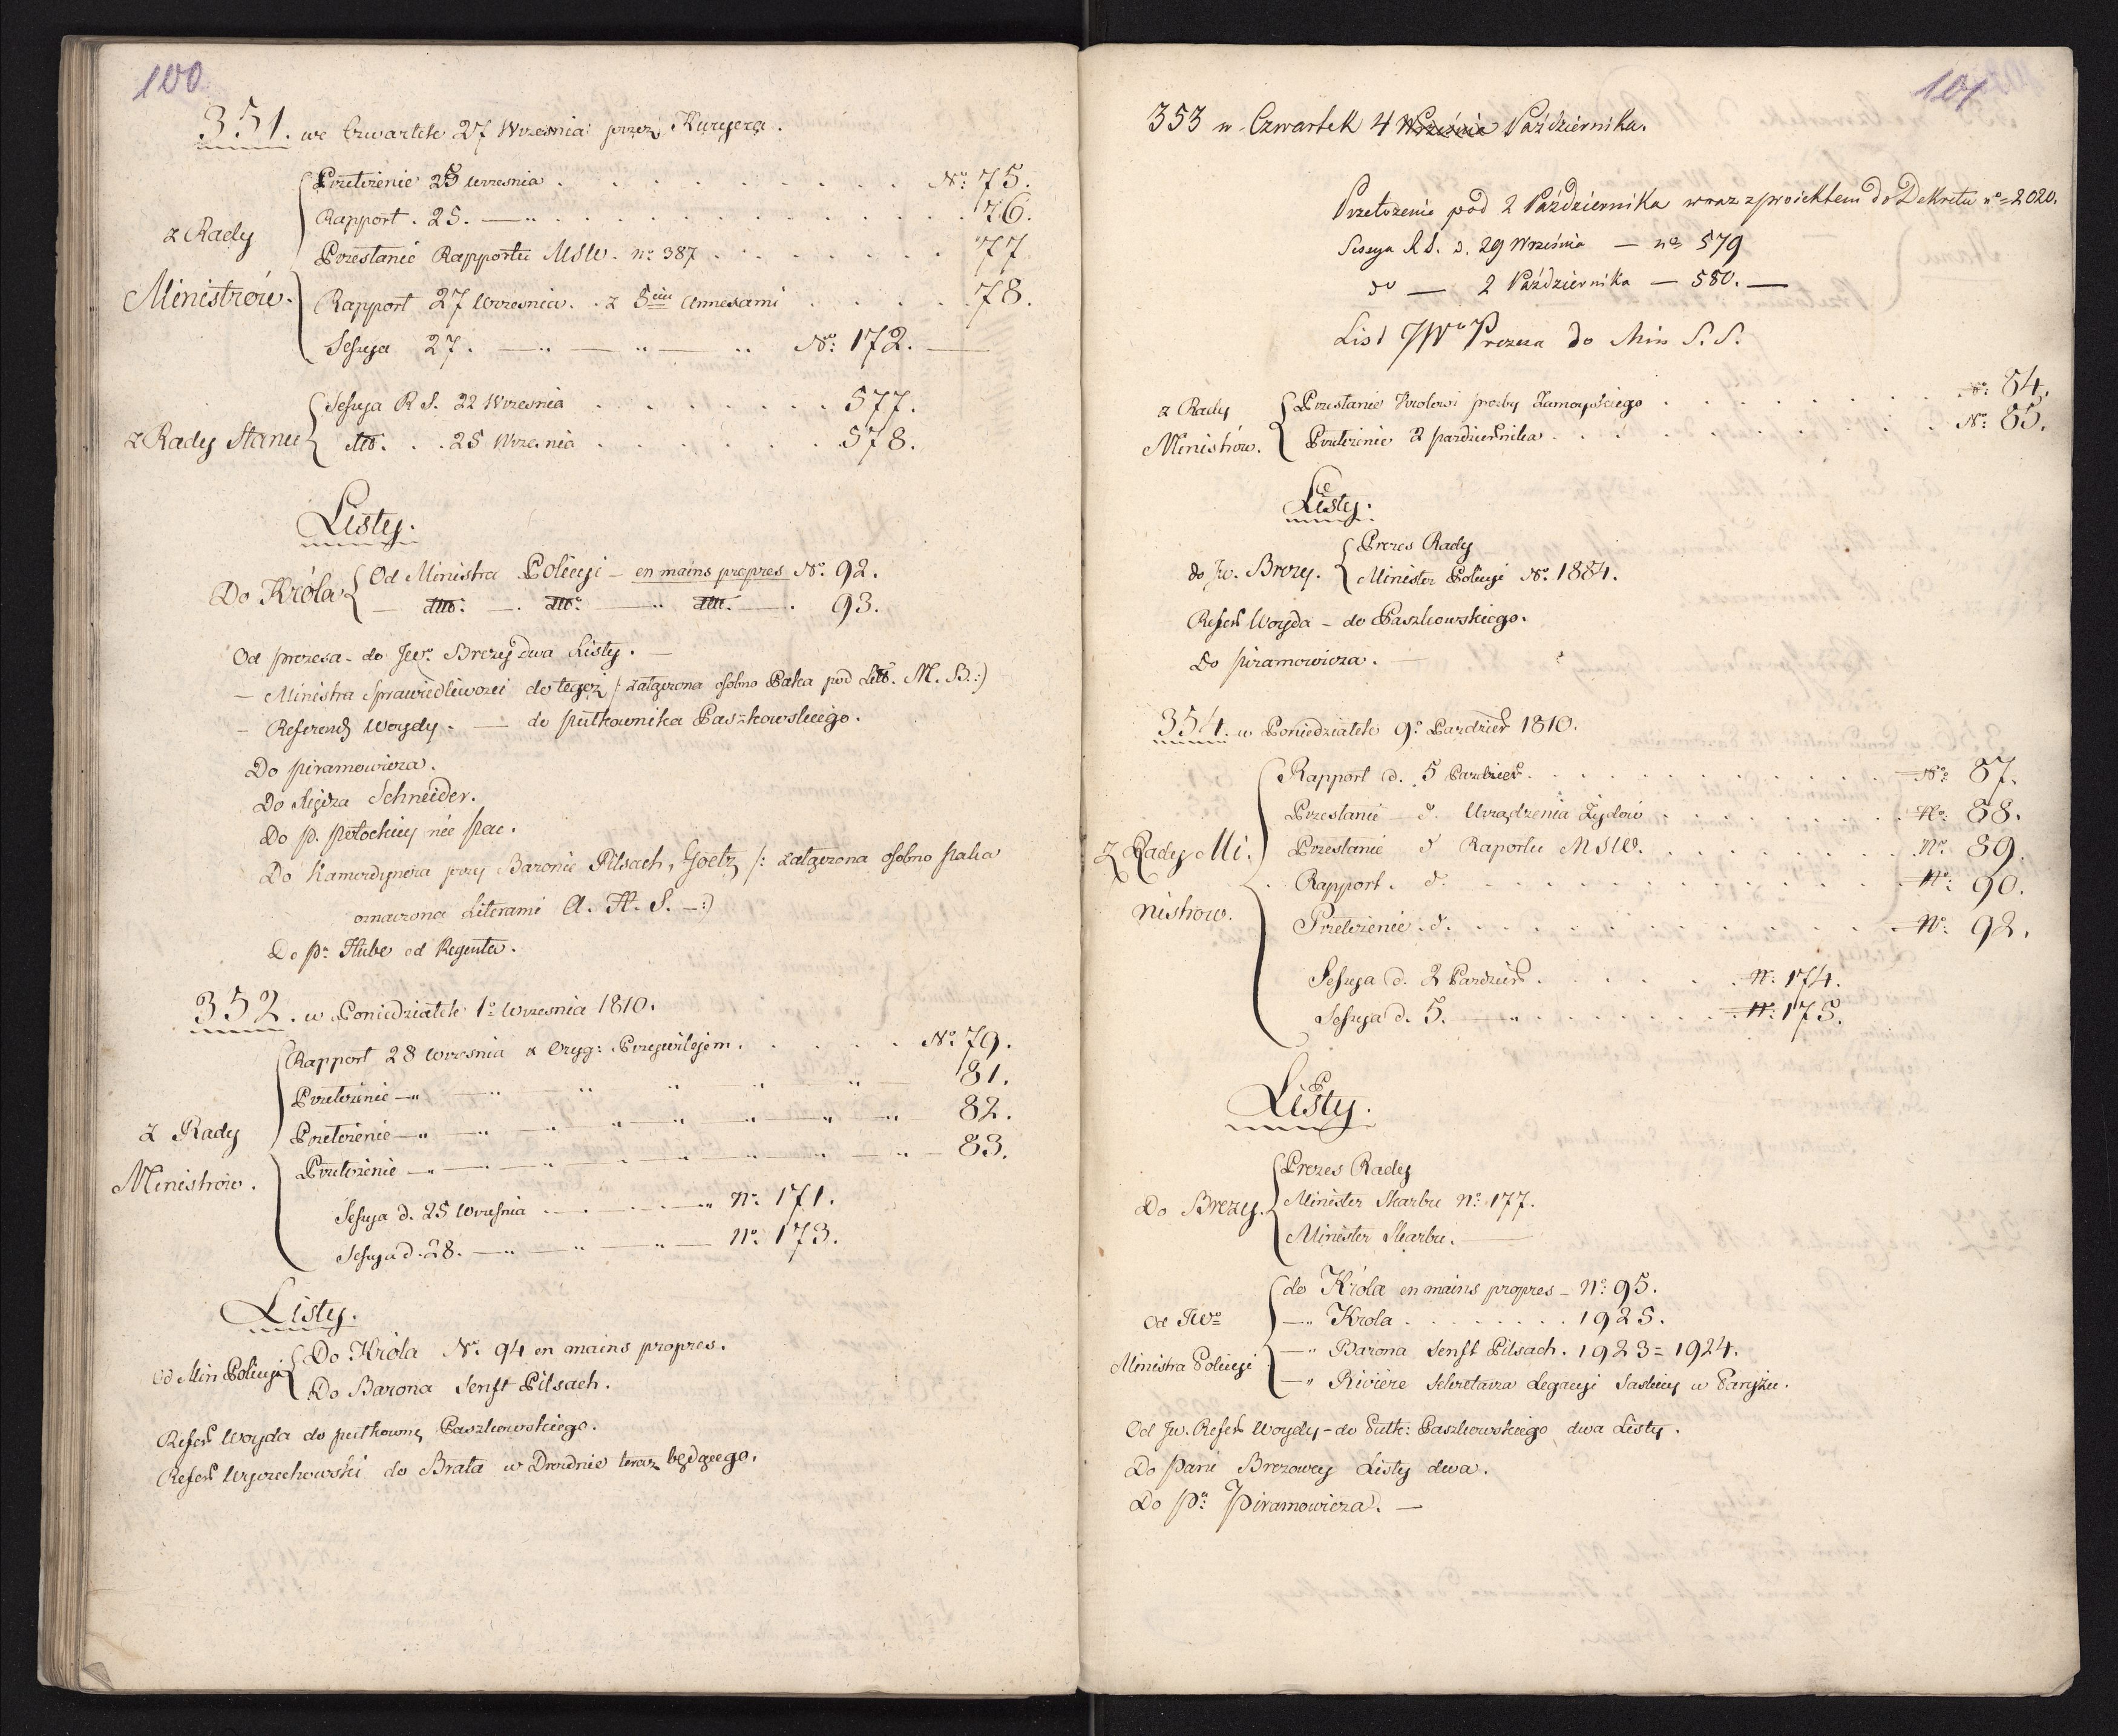 100
351. we Czwartek 27 Września przez Kuryera.
Przełożenie 25 Września . . . . . . . . . . No: 75.
Rapport . 25. —„ . . . . . . . . . . . 76.
z Rady
Przesłanie Rapportu MSW. no: 387 . . . . . . . 77
Ministrów.
Rapport 27 Września . . z 5ciu Annexami . . . . . 78.
Sessya 27. —„— „— „ No: 172. —
Sessya R S. 22 Września . . . . . . . 577.
z Rady Stanu
dtto. . . 25 Września . . . . . . . 578.
Listy.
Do Króla
Od Ministra Policyi – en mains propres No. 92.
— dtto: —. dtto: —„ dtto. —. 93.
Od prezesa – do JW. Brezy dwa Listy. —
– Ministra Sprawiedliwości do tegoż /: załączona osobno Paka pod Litt. M. B.:)
– Referend Woydy. — do pułkownika Paszkowskiego.
Do piramowicza.
Do Xiędza Schneider.
Do p. potockiey née pac.
Do Kamerdynera przy Baronie Pilsach, Goetz /: załączona osobno paka
oznaczona Literami A. H. S. —:)
Do Pa Hube od Regenta.
352. w Poniedziałek 1o Września 1810.
Rapport 28 Września z Oryg: Przywilejem . . . . . No: 79.
Przełożenie —„ — „ „ „ „ — 81.
z Rady
Przełożenie —„ — „ — „ — „ — „ — 82.
Ministrów.
Przełożenie —„ — „ — „ — „ — „ — 83.
Sessya d. 25 Września . . . — „ No: 171.
Sessya d. 28. —„ — „ — „ — No: 173.
Listy.
Od Min Policyi
Do Króla No. 94 en mains propres.
Do Barona Senft Pilsach.
Refer Woyda do pułkowni Paszkowskiego.
Refer Wyczechowski do Brata w Dreźnie teraz będącego.
101
353 w Czwartek 4 Września Października.
Przełożenie pod 2 Października wraz z proiektem do Dekretu no = 2020.
Sessya R S. d. 29 Września — no 579
do — 2 Października — 580. —
List JWo Prezesa do Min S. S.
z Rady
Ministrów.
Przesłanie Królowi prośby Zamoyskiego . . . . . . . . No: 84.
Przełożenie 2 października . . . . . . . . . . No: 85.
Listy.
do Jw. Brezy.
Prezes Rady
Minister Policyi No. 1884.
Refer Woyda – do Paszkowskiego.
Do piramowicza. —
354. w Poniedziałek 9o Paździer 1810.
Rapport d. 5 Paździer. . . . . . . . . . . . No: 87.
Przesłanie – d. Urządzenia Żydów . . . . . . . . No: 88.
z Rady Mi:
Przesłanie d Raportu MSW. . . . . . . . . No: 89.
Rapport . d. . . . . . . . . . . . . No: 90.
nistrow.
Przełożenie . d. . . . . . . . . . . . No: 92.
Sessya d. 2 Paździer . . . . . . No: 174.
Sessya d. 5. —„ . . . . . . . No: 175.
Listy.
Do Brezy.
Prezes Rady
Minister Skarbu No: 177.
Minister Skarbu. —
Od JWo
Ministra Policyi
do Króla en mains propres – No: 95.
—„ Krola . . . . . . . . 1925.
—„ Barona Senft Pilsach. 1923 = 1924.
—„ Riviere Sekretarza Legacyi Saskiey w Paryżu.
Od Jw. Refer Woydy – do Pułk: Paszkowskiego dwa Listy.
Do Pani Brezowey Listy dwa.
Do Pa: Piramowicza. —